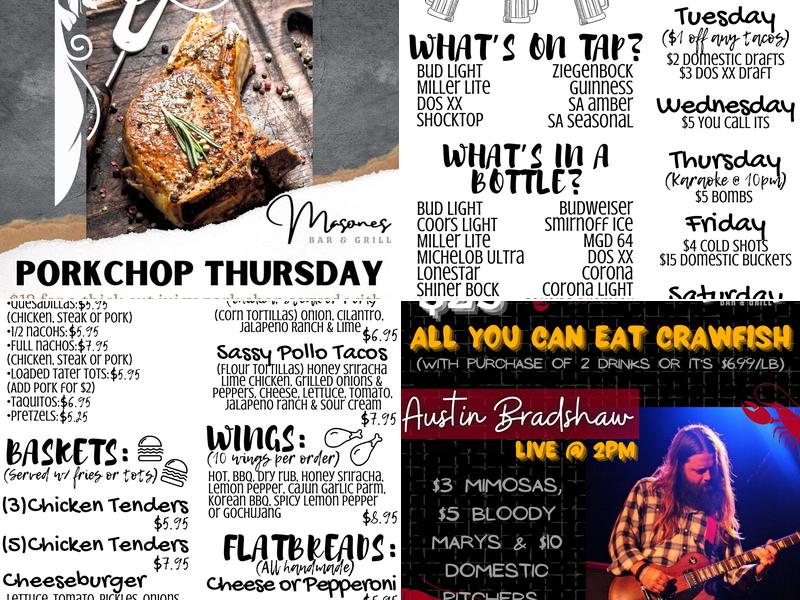 Masones
BAR & GRILL
PORKCHOP THURSDAY
WHAT'S ON TAP?
BUD LIGHT
MILLER LITE
DOS XX
SHOCKTOP
ZIEGENBOCK
GUINNESS
SA AMBER
SA SEASONAL
WHAT'S IN A
BOTTLE?
BUD LIGHT
COORS LIGHT
MILLER LITE
MICHELOB ULTRA
LONESTAR
SHINER BOCK
BUDWEISER
SMIRNOFF ICE
MGD 64
DOS XX
CORONA
CORONA LIGHT
Tuesday
($1 off any tacos)
$2 DOMESTIC DRAFTS
$3 DOS XX DRAFT
Wednesday
$5 YOU CALL ITS
Thursday
(Karaoke @ 10pm)
$5 BOMBS
Friday
$4 COLD SHOTS
$15 DOMESTIC BUCKETS
Saturday
•QUESADILLAS:$5.95
(CHICKEN, STEAK OR PORK)
•1/2 NACOHS:$5.95
•FULL NACHOS:$7.95
(CHICKEN, STEAK OR PORK)
•LOADED TATER TOTS:$5.95
(ADD PORK FOR $2)
•TAQUITOS:$6.95
•PRETZELS:$5.25
BASKETS:
(Served w/ fries or tots)
(3)Chicken Tenders
$5.95
(5)Chicken Tenders
$7.95
Cheeseburger
LETTUCE, TOMATO, PICKLES, ONIONS
(CORN TORTILLAS) ONION, CILANTRO,
JALAPENO RANCH & LIME
$6.95
Sassy Pollo Tacos
(FLOUR TORTILLAS) HONEY SRIRACHA
LIME CHICKEN, GRILLED ONIONS &
PEPPERS, CHEESE, LETTUCE, TOMATO,
JALAPENO RANCH & SOUR CREAM
$7.95
WINGS:
(10 wings per order)
HOT, BBQ, DRY RUB, HONEY SRIRACHA,
LEMON PEPPER, CAJUN GARLIC PARM,
KOREAN BBQ, SPICY LEMON PEPPER
OR GOCHUJANG
$8.95
FLATBREADS:
(All handmade)
Cheese or Pepperoni
BAR & GRILL
ALL YOU CAN EAT CRAWFISH
(WITH PURCHASE OF 2 DRINKS OR IT'S $6.99/LB)
Austin Bradshaw
LIVE @ 2PM
$3 MIMOSAS,
$5 BLOODY
MARYS & $10
DOMESTIC
PITCHERS